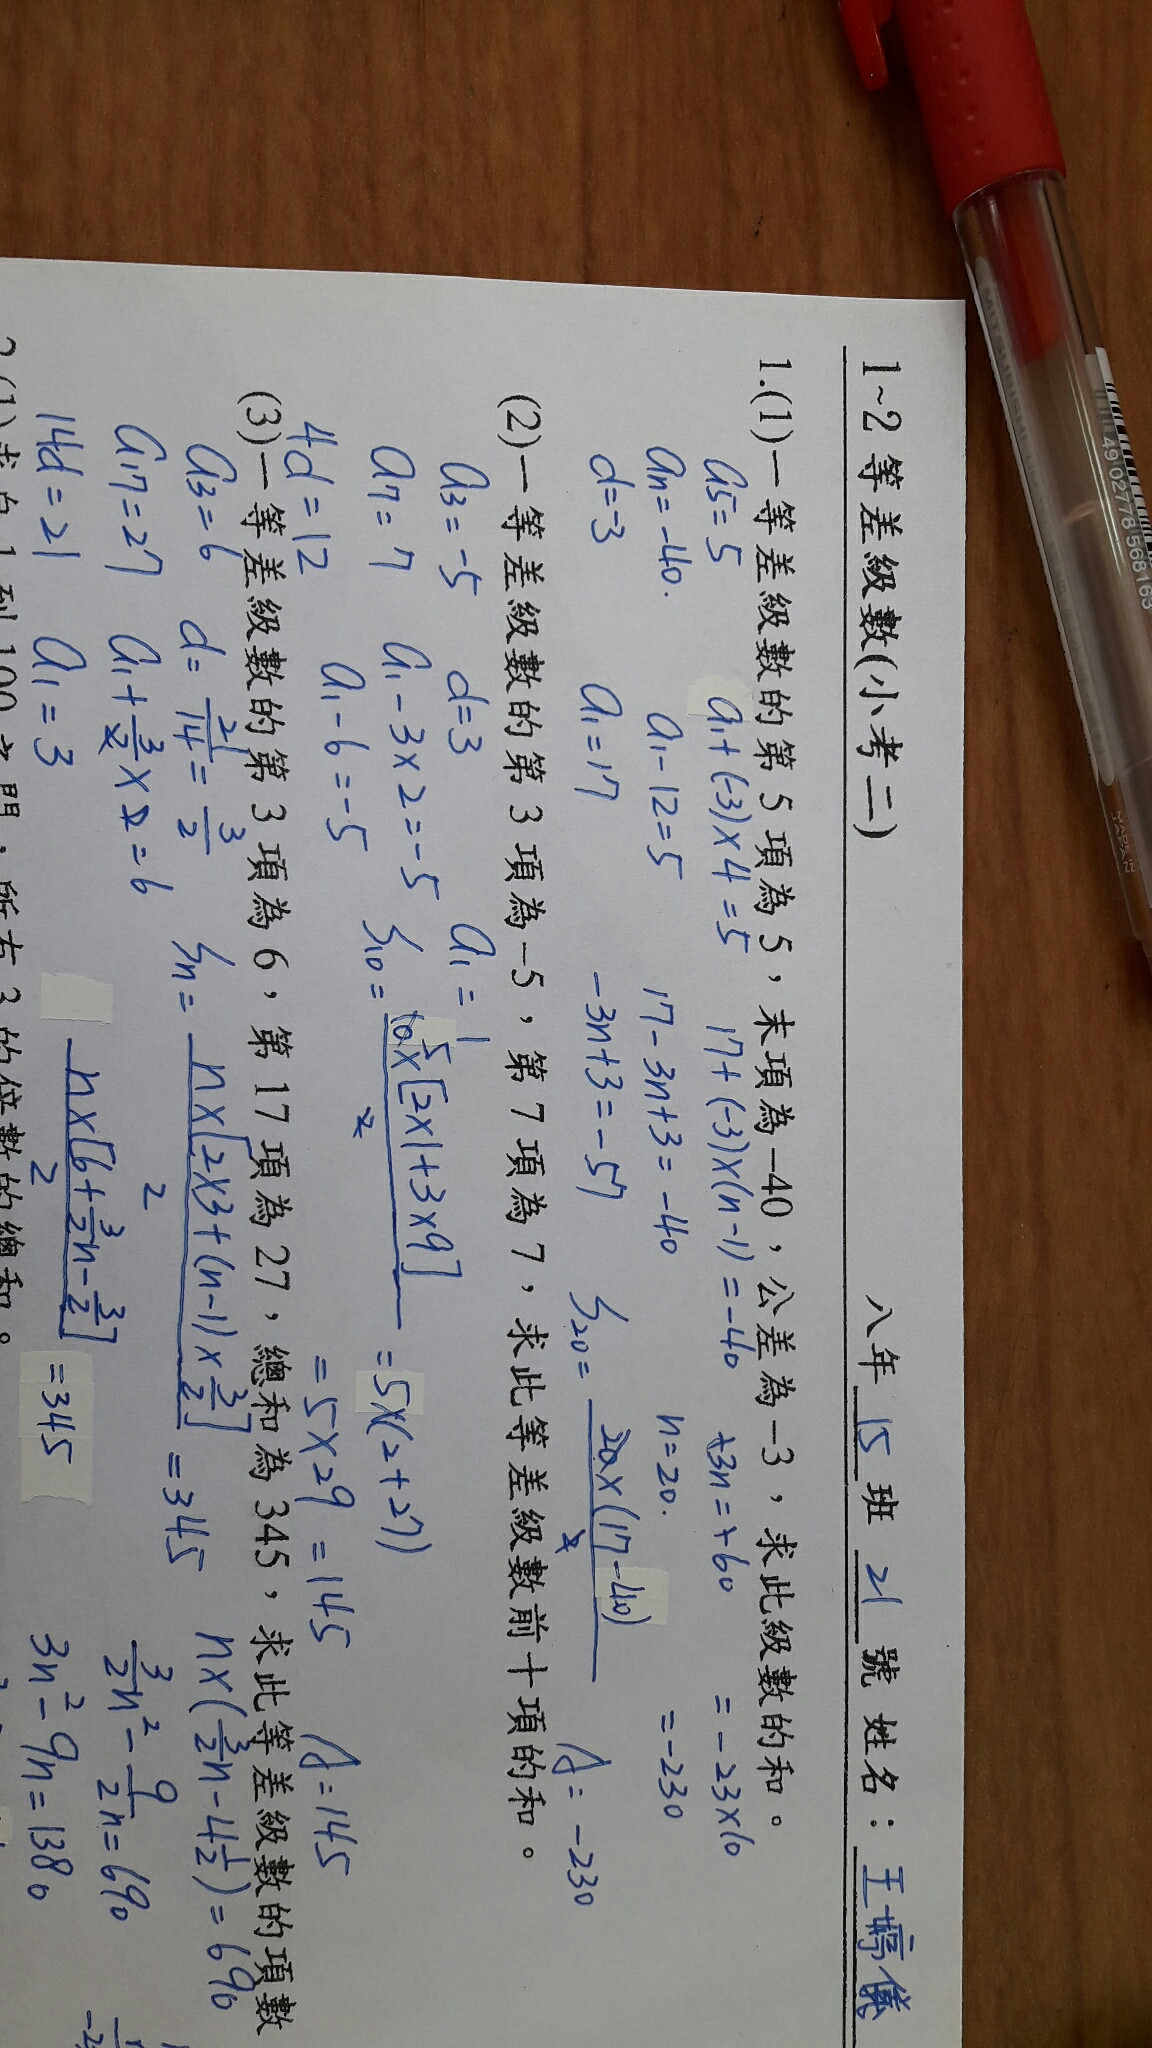 1~2 等差級數(小考二) 八年 15 班 21 號 姓名：王婷儀
1.(1)一等差級數的第 5 項為 5，末項為-40，公差為-3，求此級數的和。
a5=5 a1+(-3)×4=5 17+(-3)×(n-1)=-40 +3n=+60 =-23×10
an=-40. a1-12=5 17-3n+3=-40 n=20. =-230
d=-3 a1=17 -3n+3=-57 S20=20×(17-40)/2 A=-230
(2)一等差級數的第 3 項為-5，第 7 項為 7，求此等差級數前十項的和。
a3=-5 d=3 a1=1
a7=7 a1-3×2=-5 S10=10×[2×1+3×9]/2 5 =5×(2+27)
4d=12 a1-6=-5 =5×29=145 A=145
(3)一等差級數的第 3 項為 6，第 17 項為 27，總和為 345，求此等差級數的項數
a3=6 d=21/14=3/2 Sn=n×[2×3+(n-1)×3/2]/2=345 n×(3/2n-4 1/2)=690
a17=27 a1+3/2×2=6 3/2n²-9/2n=690
14d=21 a1=3 n×[6+3/2n-3/2]/2=345 3n²-9n=1380
MITSUBISHI
JAPAN
4902778568163